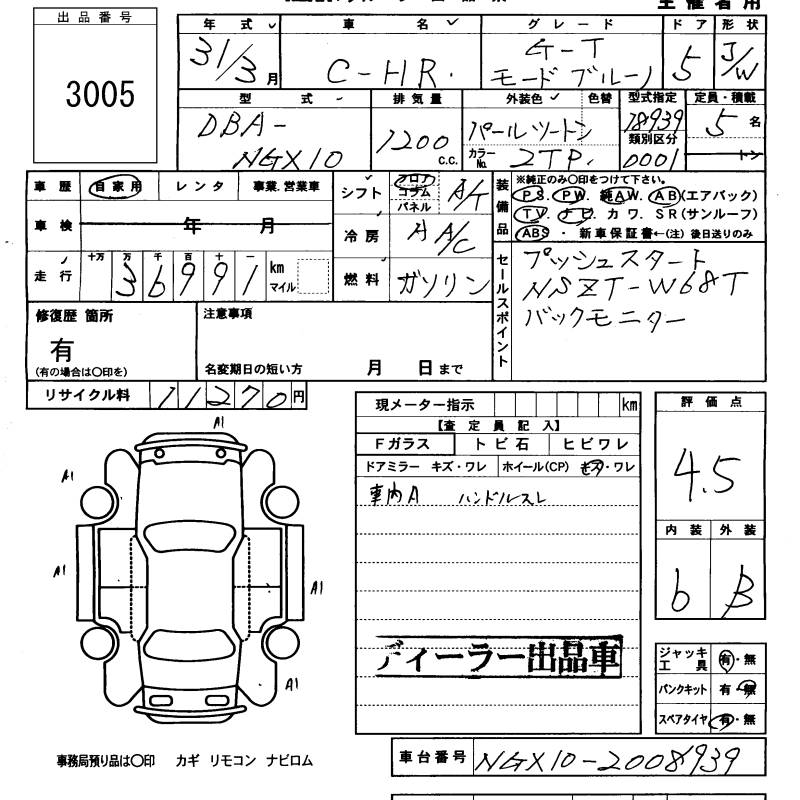 主催者用
出品番号
3005
年式 車名 グレード ドア 形状
31/3月 C-HR. G-T モードブルーノ 5 J/W
型式 排気量 外装色 色替 型式指定 定員・積載
DBA-NGX10 1200 c.c. パールツートン 18939 5名
カラーNo. 2TP. 類別区分 0001 トン
車歴 自家用 レンタ 事業.営業車
シフト フロア コラム パネル A/T
装備品
※純正のみ〇印をつけて下さい。
P S. P W. 純A W. A B(エアバック)
T V. ナ ビ. カ ワ. S R(サンルーフ)
ABS ・ 新車保証書←(注)後日送りのみ
車検 年 月
冷房 A A/C
走行 十万 万 千 百 十 一
36991 km マイル
燃料 ガソリン
セールスポイント
プッシュスタート
NSZT-W68T
バックモニター
修復歴 箇所
有
(有の場合は〇印を)
注意事項
名変期日の短い方 月 日まで
リサイクル料 11270円
現メーター指示 km
【査定員記入】
Fガラス トビ石 ヒビワレ
ドアミラー キズ・ワレ ホイール(CP) キズ・ワレ
車内A ハンドルスレ
ディーラー出品車
評価点
4.5
内装 外装
b B
A1
A1
A1
A1
A1
ジャッキ工具 有・無
パンクキット 有・無
スペアタイヤ 有・無
事務局預り品は〇印 カギ リモコン ナビロム
車台番号 NGX10-2008939